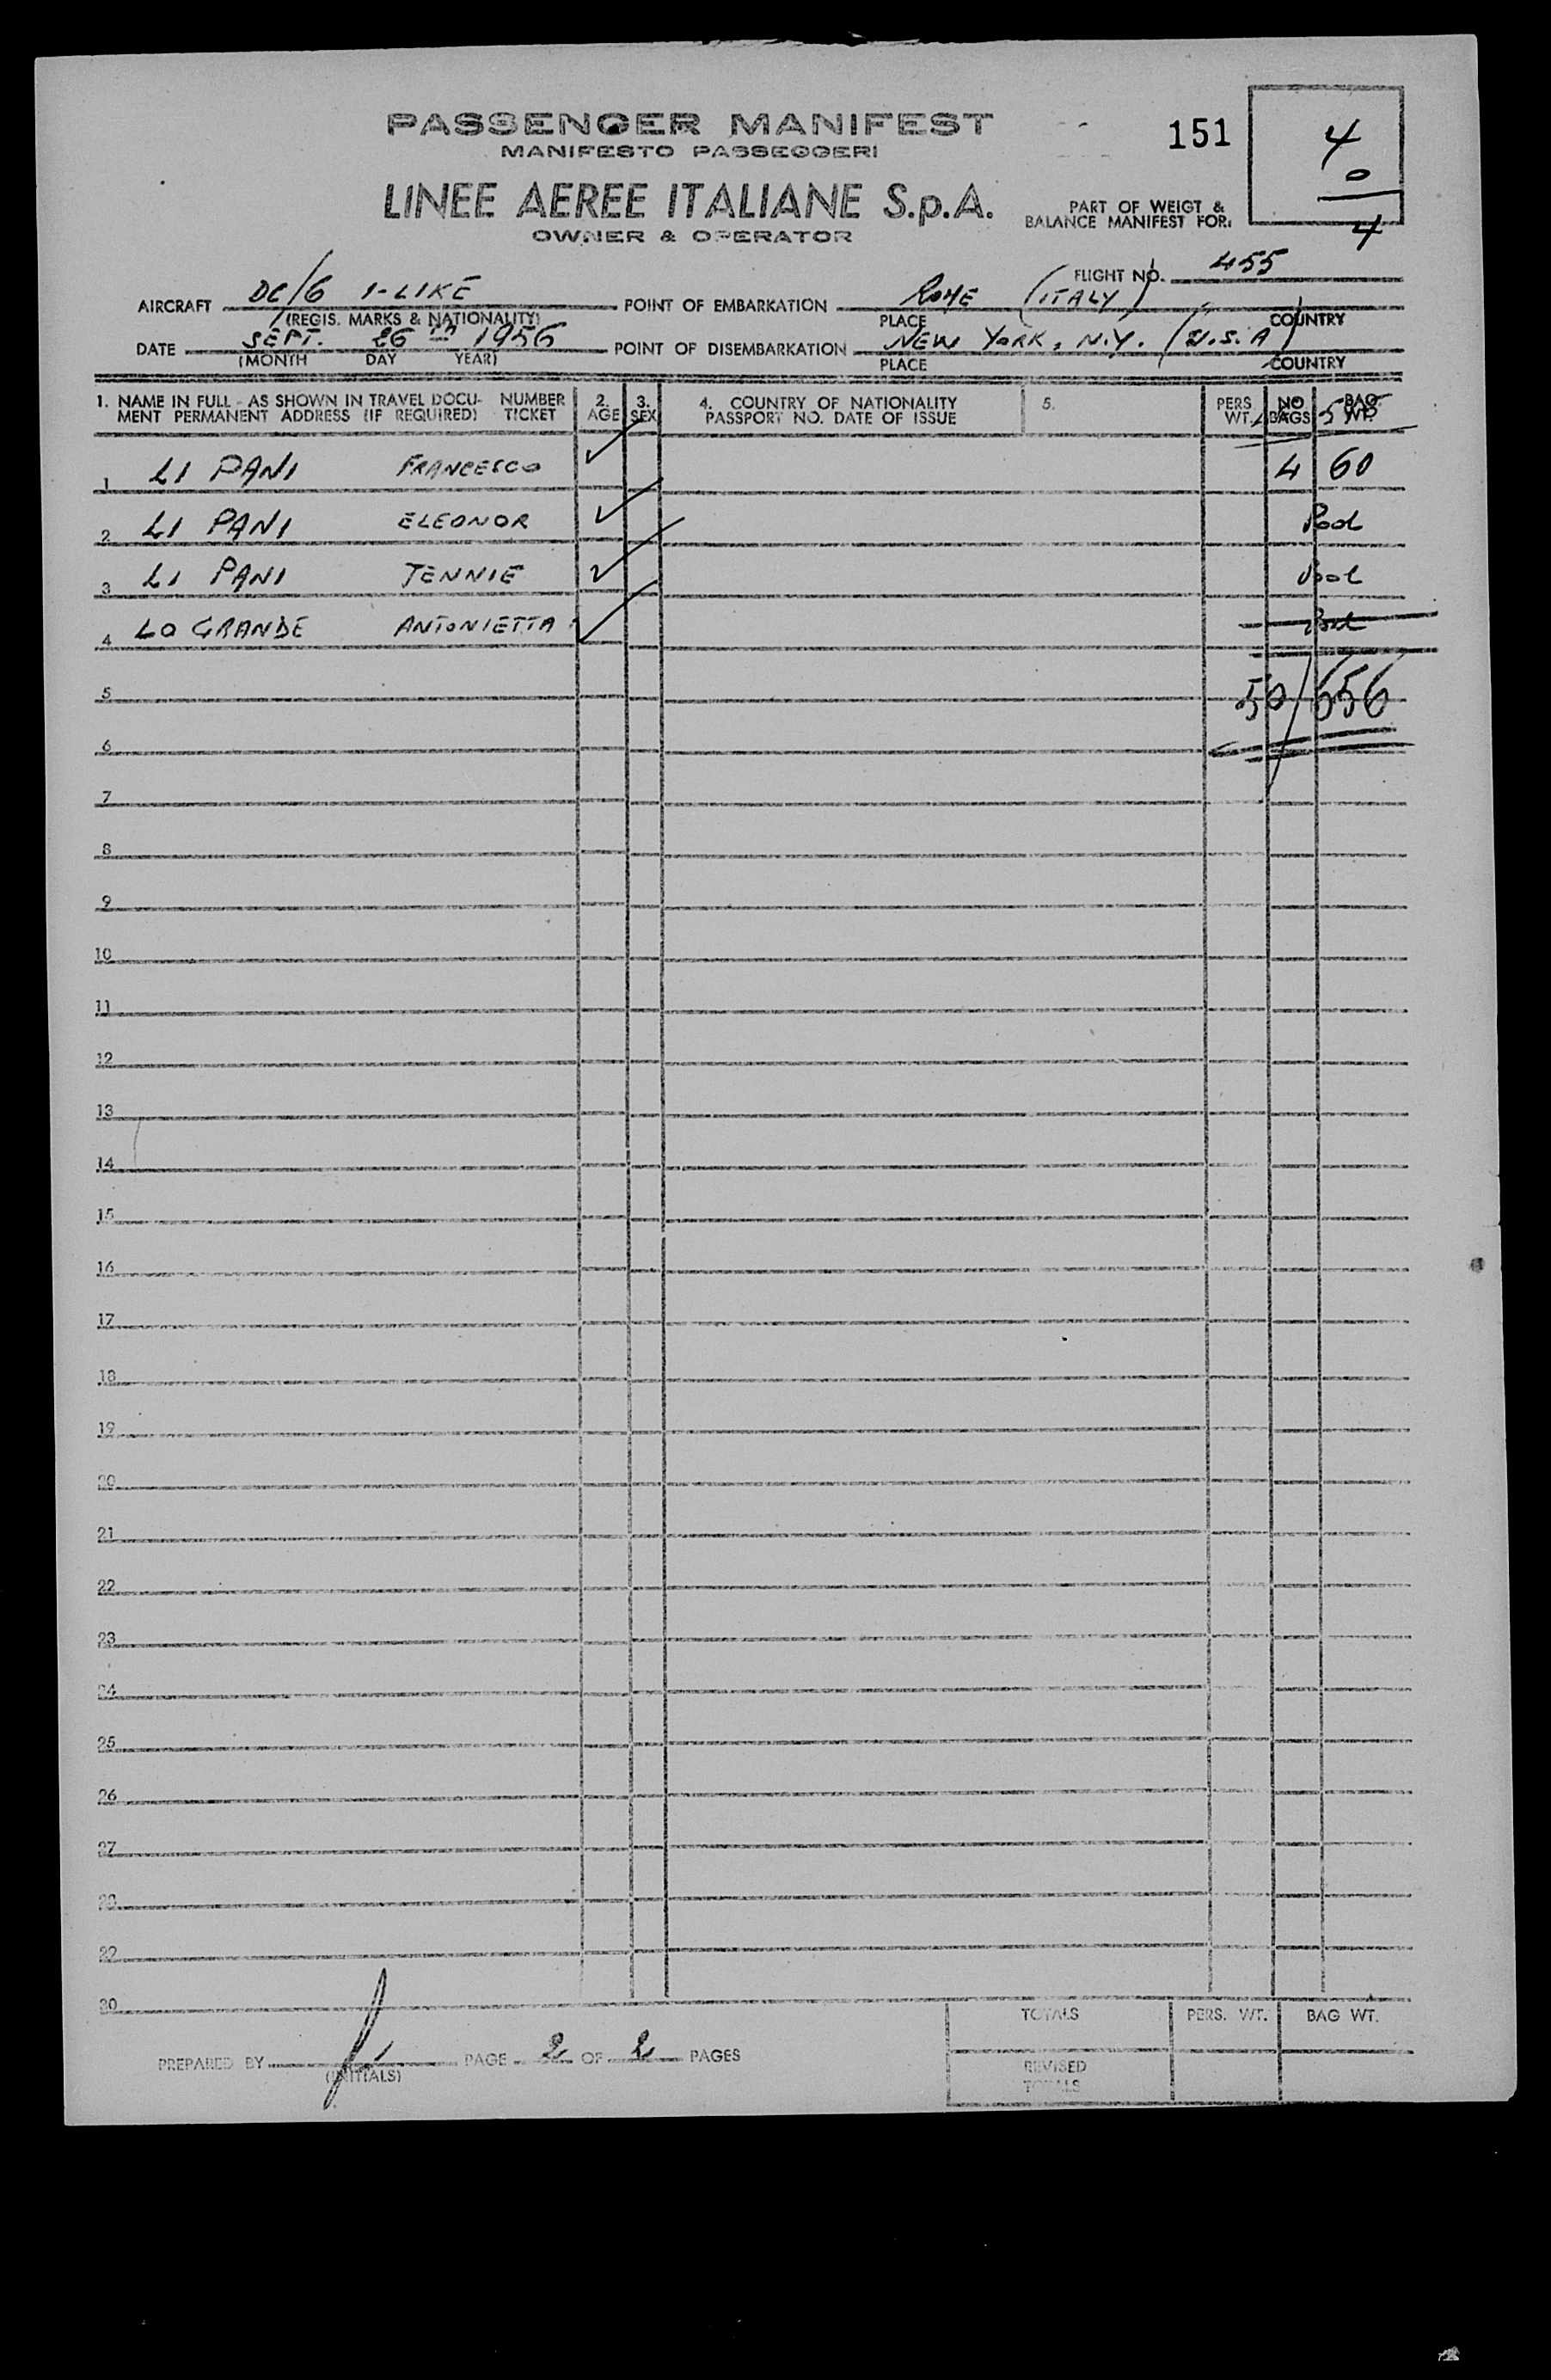 PASSENGER MANIFEST
MANIFESTO PASSEGGERI
151
4
0
4
LINEE AEREE ITALIANE S.p.A.
OWNER & OPERATOR
PART OF WEIGT &
BALANCE MANIFEST FOR:
FLIGHT NO. 455
AIRCRAFT DC/6 I-LIKE POINT OF EMBARKATION ROME (ITALY)
(REGIS. MARKS & NATIONALITY) PLACE COUNTRY
DATE SEPT. 26th 1956 POINT OF DISEMBARKATION NEW YORK, N.Y. (U.S.A)
(MONTH DAY YEAR) PLACE COUNTRY
1. NAME IN FULL - AS SHOWN IN TRAVEL DOCU- NUMBER 2. 3. 4. COUNTRY OF NATIONALITY 5. PERS. NO BAG.
MENT PERMANENT ADDRESS (IF REQUIRED) TICKET AGE SEX PASSPORT NO. DATE OF ISSUE WT. BAGS WT.
1 LI PANI FRANCESCO 4 60
2 LI PANI ELEONOR Pool
3 LI PANI JENNIE Pool
4 LO GRANDE ANTONIETTA Pool
5 50/656
6
7
8
9
10
11
12
13
14
15
16
17
18
19
20
21
22
23
24
25
26
27
28
29
30
TOTALS PERS. WT. BAG WT.
PREPARED BY PAGE 2 OF 2 PAGES
(INITIALS)
REVISED
TOTALS